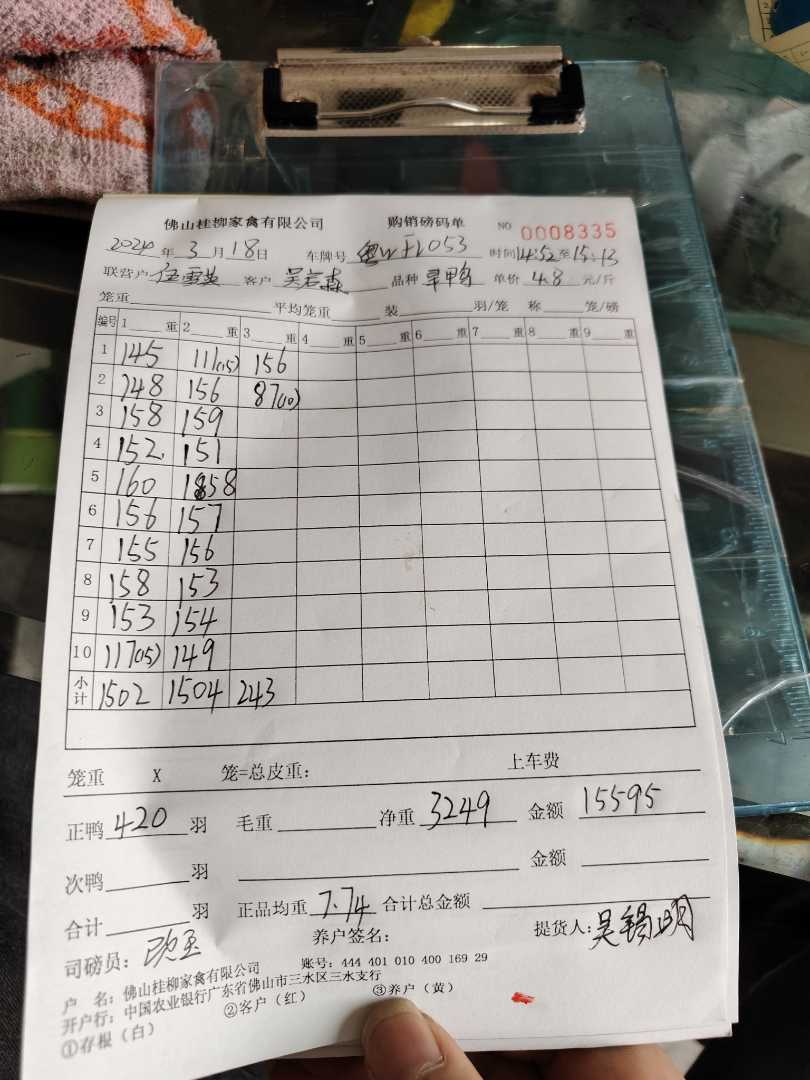 佛山桂柳家禽有限公司 购销磅码单 NO 0008335
2024年3月18日 车牌号 粤WFL053 时间14:52至15:13
联营户 伍雪英 客户 吴若森 品种 旱鸭 单价 4.8 元/斤
笼重 平均笼重 装 羽/笼 称 笼/磅
编号 1 重 2 重 3 重 4 重 5 重 6 重 7 重 8 重 9 重
1 145 111(15) 156
2 148 156 87(10)
3 158 159
4 152 151
5 160 158
6 156 157
7 155 156
8 158 153
9 153 154
10 117(15) 149
小计 1502 1504 243
笼重 X 笼=总皮重: 上车费
正鸭 420 羽 毛重 净重 3249 金额 15595
次鸭 羽 金额
合计 羽 正品均重 7.74 合计总金额
司磅员: 养户签名: 提货人: 吴锡明
户 名: 佛山桂柳家禽有限公司 账号: 444 401 010 400 169 29
开户行: 中国农业银行广东省佛山市三水区三水支行
①存根（白） ②客户（红） ③养户（黄）